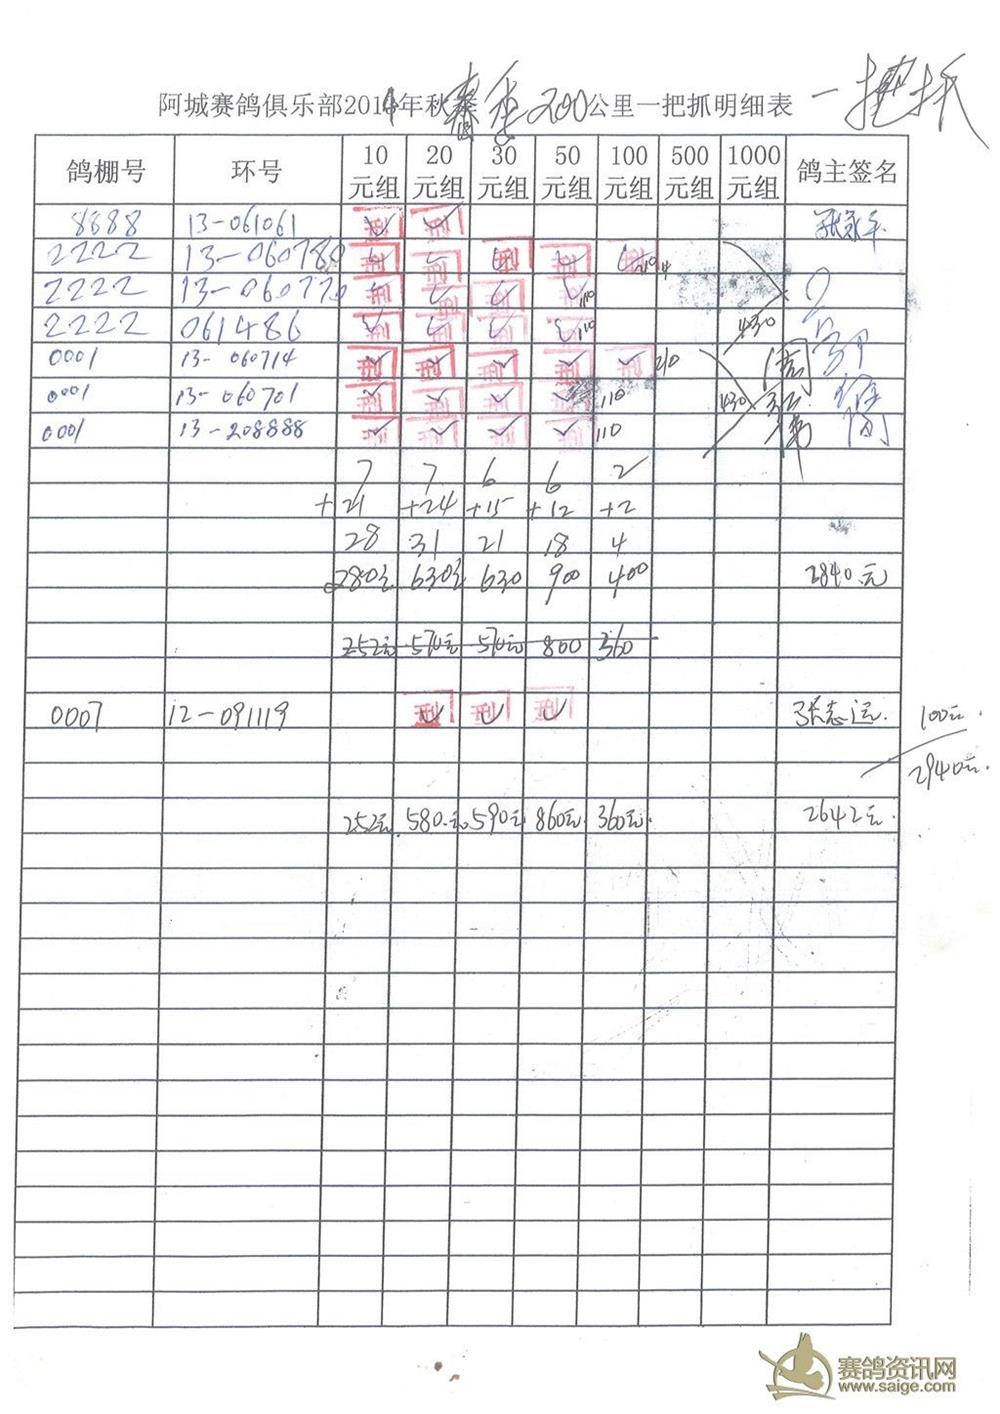 阿城赛鸽俱乐部2014年秋季 春季 200公里一把抓明细表 一把抓
鸽棚号 环号 10元组 20元组 30元组 50元组 100元组 500元组 1000元组 鸽主签名
8888 13-061061 张永年
2222 13-060780 210
2222 13-060770 110
2222 061486 110 430
0001 13-060714 210
0001 13-060701 110 430
0001 13-208888 110
7 7 6 6 2
+21 +24 +15 +12 +2
28 31 21 18 4
280元 630元 630 900 400 2840元
252元 570元 570元 800 360
0007 12-091119 张志运 100元
2940元
252元 580元 590元 860元 360元 2642元
赛鸽资讯网
www.saige.com